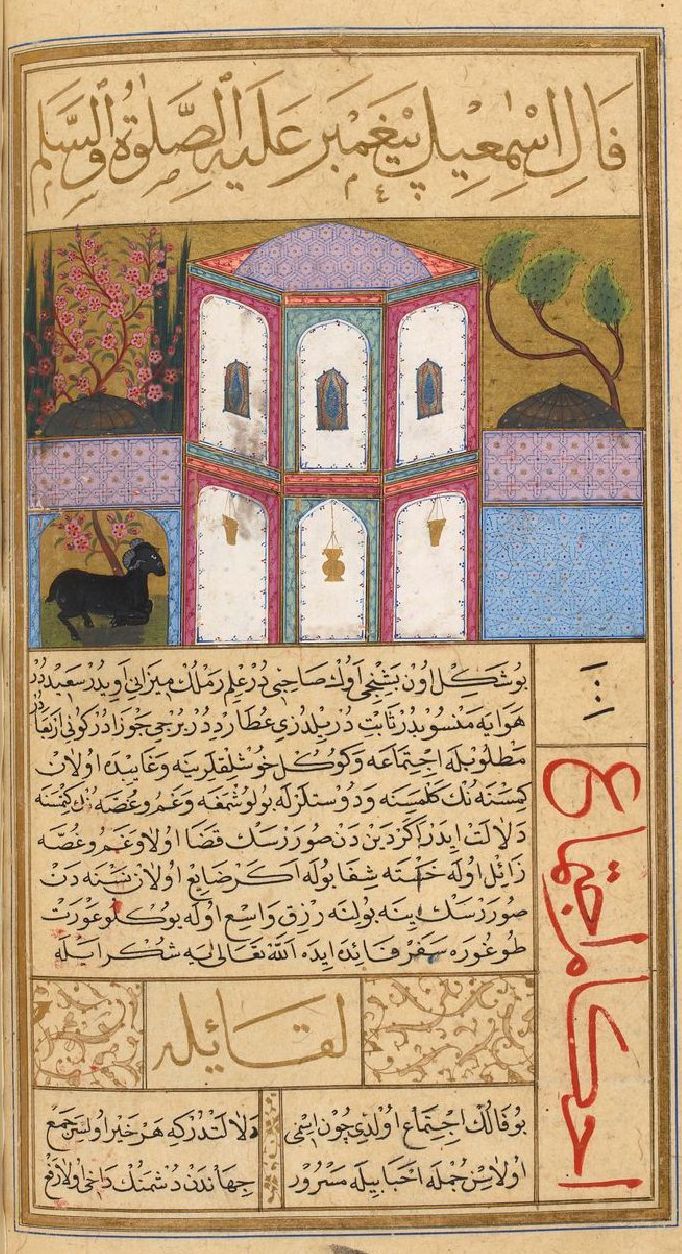 فَالِ اسْمٰعِيل پَيْغَمْبَر عَلَيْهِ الصَّلٰوةُ وَالسَّلَم
بو شكل اون بشنجى اولك صاحبى در علم رملك ميزانى اويدر سعيد در
هوايه منسوبدر ثابت در يلدزى عطارد در برجى جوزادر كونى
مطلوبله اجتماعه و كوكل خوشلقلرينه و غايبده اولان
كمسنه نك كلمسنه و دوستلرله بولوشمغه و غم و غصه
دلالت ايدر اكر دين دن صورر سك قضا اولا و غم و غصه
زائل اوله خسته شفا بوله اكر ضايع اولان نسنه دن
صورر سك ينه بولنه رزق واسع اوله يوكلو عورت
طوغوره سفر فائده ايده الله تعالى يه شكر ايله
احكام اجتماع
لقائله
بو فالك اجتماع اولدى چون اسمى دلالتدر كه هر خير اولسر جمع
اولاسن جمله احبابيله مسرور جهاندن دشمنك داخى اولا رفع